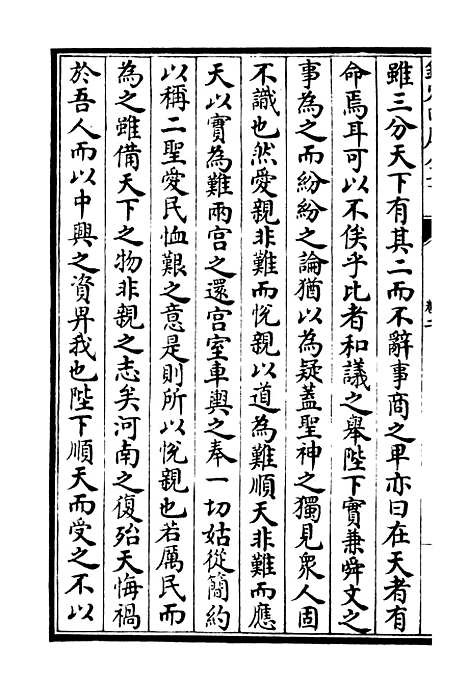 雖三分天下有其二而不辭事商之卑亦曰在天者有
命焉耳可以不俟乎比者和議之舉陛下實兼舜文之
事為之而紛紛之論猶以為疑蓋聖神之獨見衆人固
不識也然愛親非難而悅親以道為難順天非難而應
天以實為難兩宫之還宫室車輿之奉一切姑從簡約
以稱二聖愛民恤艱之意是則所以悅親也若厲民而
為之雖備天下之物非親之志矣河南之復殆天悔禍
於吾人而以中興之資畀我也陛下順天而受之不以